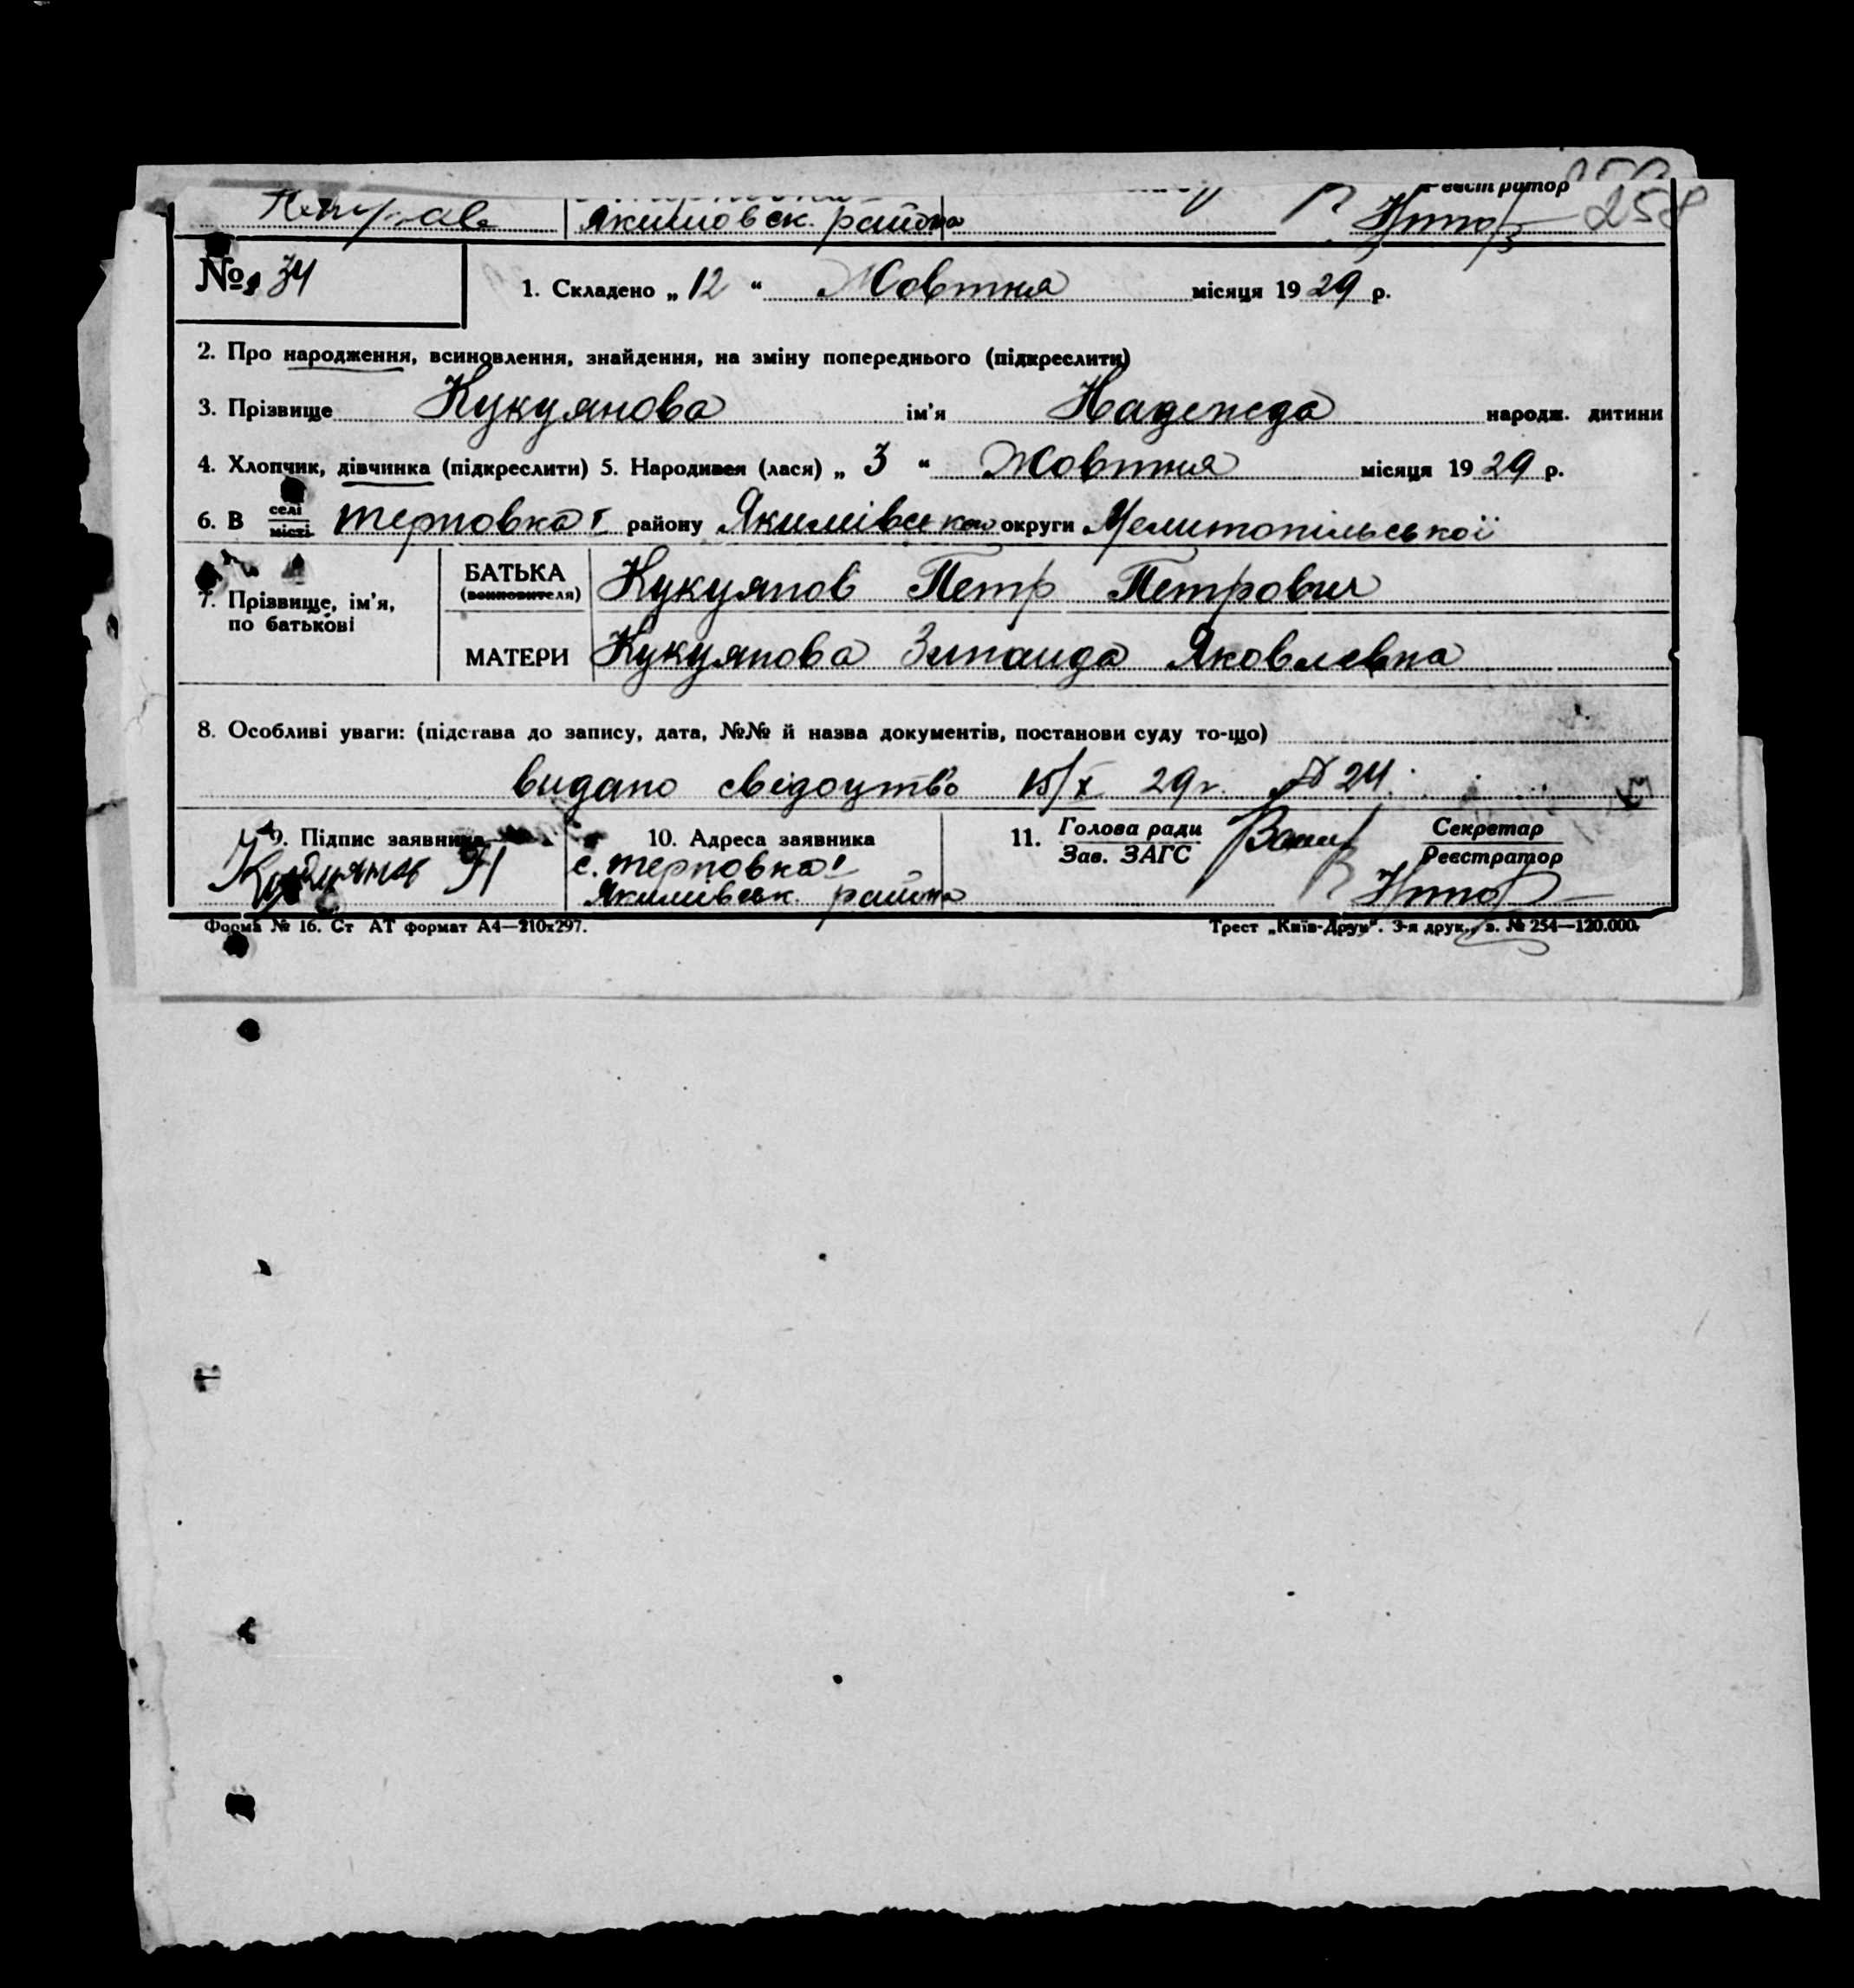 Реєстратор
Якимовск. района
258
№ 34
1. Складено „ 12 “ Жовтня місяця 1929 р.
2. Про народження, всиновлення, знайдення, на зміну попереднього (підкреслити)
3. Прізвище Кукуянова ім'я Надежда народж. дитини
4. Хлопчик, дівчинка (підкреслити) 5. Народився (лася) „ 3 “ Жовтня місяця 1929 р.
6. В селі місті Терновка I району Якимівськ округи Мелитопільської
7. Прізвище, ім'я, по батькові
БАТЬКА (всиновителя) Кукуянов Петр Петрович
МАТЕРИ Кукуянова Зинаида Яковлевна
8. Особливі уваги: (підстава до запису, дата, №№ й назва документів, постанови суду то-що)
видано свідоцтво 15/X 29 г. № 24.
9. Підпис заявника
10. Адреса заявника
с. Терновка I
Якимівськ. района
11. Голова ради
Зав. ЗАГС
Секретар
Реєстратор
Форма № 16. Ст АТ формат А4—210х297.
Трест „Київ-Друк“. 3-я друк., з. № 254—120.000.